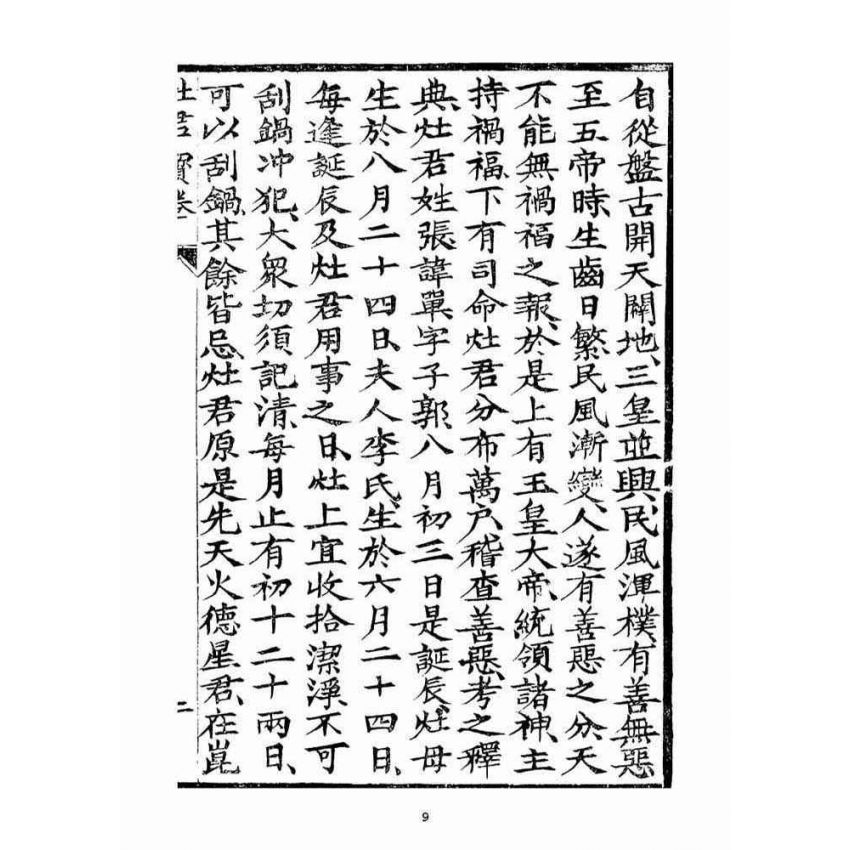 自從盤古開天闢地、三皇並興、民風渾樸、有善無惡
至五帝時、生齒日繁、民風漸變、人遂有善惡之分、天
不能無禍福之報、於是上有玉皇大帝、統領諸神、主
持禍福、下有司命灶君分布萬戶、稽查善惡、考之釋
典、灶君姓張諱單字子郭、八月初三日是誕辰、灶母
生於八月二十四日、夫人李氏、生於六月二十四日、
每逢誕辰及灶君用事之日、灶上宜收拾潔淨、不可
刮鍋冲犯、大眾切須記清、每月止有初十二十兩日、
可以刮鍋、其餘皆忌、灶君原是先天火德星君、在崑
灶君寶卷
二
9